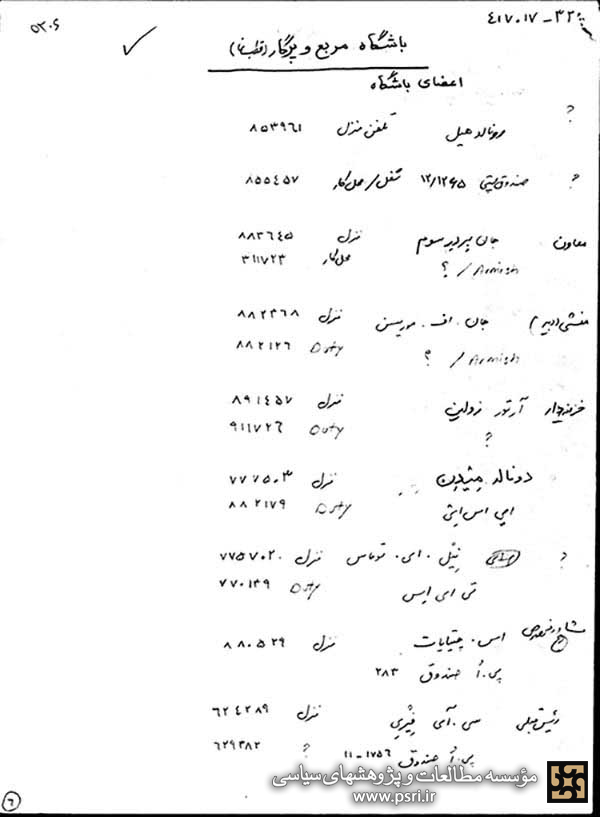 ۴۱۷۰۱۷-۳۲
۵۳۰۶
باشگاه مربع و پرگار (قطب‌نما)
اعضای باشگاه
؟
رونالد هیل تلفن منزل ۸۵۳۹۶۱
؟ صندوق پستی ۱۲/۱۲۶۵ تلفن / محل کار ۸۵۵۴۵۷
معاون جان سوم منزل ۸۸۳۶۴۵
Armish / ؟ محل کار ۳۱۱۷۲۳
منشی (دبیر) جان . اف . موریسن منزل ۸۸۲۳۶۸
Armish / ؟ Duty ۸۸۲۱۲۶
خزینه‌دار آرتور زولین منزل ۸۹۱۴۵۷
؟ Duty ۹۱۱۷۲۶
دونالد منزل ۷۷۷۵۰۳
ایی اس ایتی Duty ۸۸۲۱۷۹
؟ نیل . ای . توماس منزل ۷۷۵۷۰۲۰
تی ای ایس Duty ۷۷۰۱۴۹
مشاور اس . چتیایات منزل ۸۸۰۵۲۹
پی . اُ صندوق ۲۸۳
رئیس قبلی سی . آی فیری منزل ۶۲۴۲۸۹
پی . اُ صندوق ۱۷۵۶ - ۱۱ ؟ ۶۲۹۳۸۲
مؤسسه مطالعات و پژوهشهای سیاسی
www.psri.ir
۶